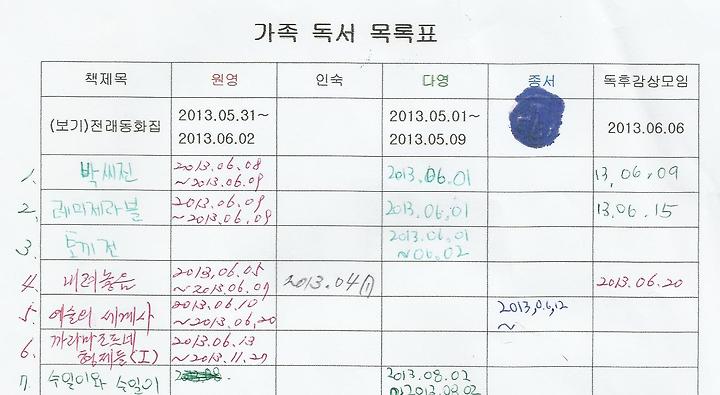 가족 독서 목록표
책제목 원영 인숙 다영 종서 독후감상모임
(보기)전래동화집 2013.05.31~ 2013.05.01~ 2013.06.06
2013.06.02 2013.05.09
1. 박씨전 2013.06.08 2013.06.01 13.06.09
~2013.06.09
2. 레미제라블 2013.06.09 2013.06.01 13.06.15
~2013.06.09
3. 토끼전 2013.06.01
~06.02
4. 내려놓음 2013.06.05 2013.04(1) 2013.06.20
~2013.06.09
5. 예술의 세계사 2013.06.10 2013.06.12
~2013.06.20 ~
6. 까라마조프네 2013.06.13
형제들(I) ~2013.11.27
7. 수일이와 수일이 2013.08.02
~2013.08.02